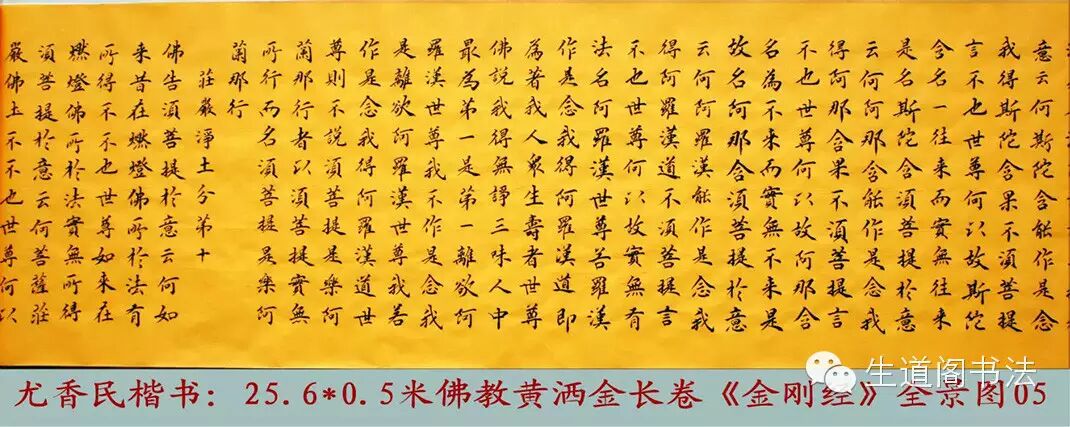 意云何斯陀含能作是念
我得斯陀含果不須菩提
言不也世尊何以故斯陀
含名一往來而實無往來
是名斯陀含須菩提於意
云何阿那含能作是念我
得阿那含果不須菩提言
不也世尊何以故阿那含
名為不來而實無不來是
故名阿那含須菩提於意
云何阿羅漢能作是念我
得阿羅漢道不須菩提言
不也世尊何以故實無有
法名阿羅漢世尊若羅漢
作是念我得阿羅漢道即
為著我人衆生壽者世尊
佛說我得無諍三昧人中
最為第一是第一離欲阿
羅漢世尊我不作是念我
是離欲阿羅漢世尊我若
作是念我得阿羅漢道世
尊則不說須菩提是樂阿
蘭那行者以須菩提實無
所行而名須菩提是樂阿
蘭那行
莊嚴淨土分第十
佛告須菩提於意云何如
來昔在燃燈佛所於法有
所得不不也世尊如來在
燃燈佛所於法實無所得
須菩提於意云何菩薩莊
嚴佛土不不也世尊何以
生道阁书法
尤香民楷书：25.6*0.5米佛教黄洒金长卷《金刚经》全景图05